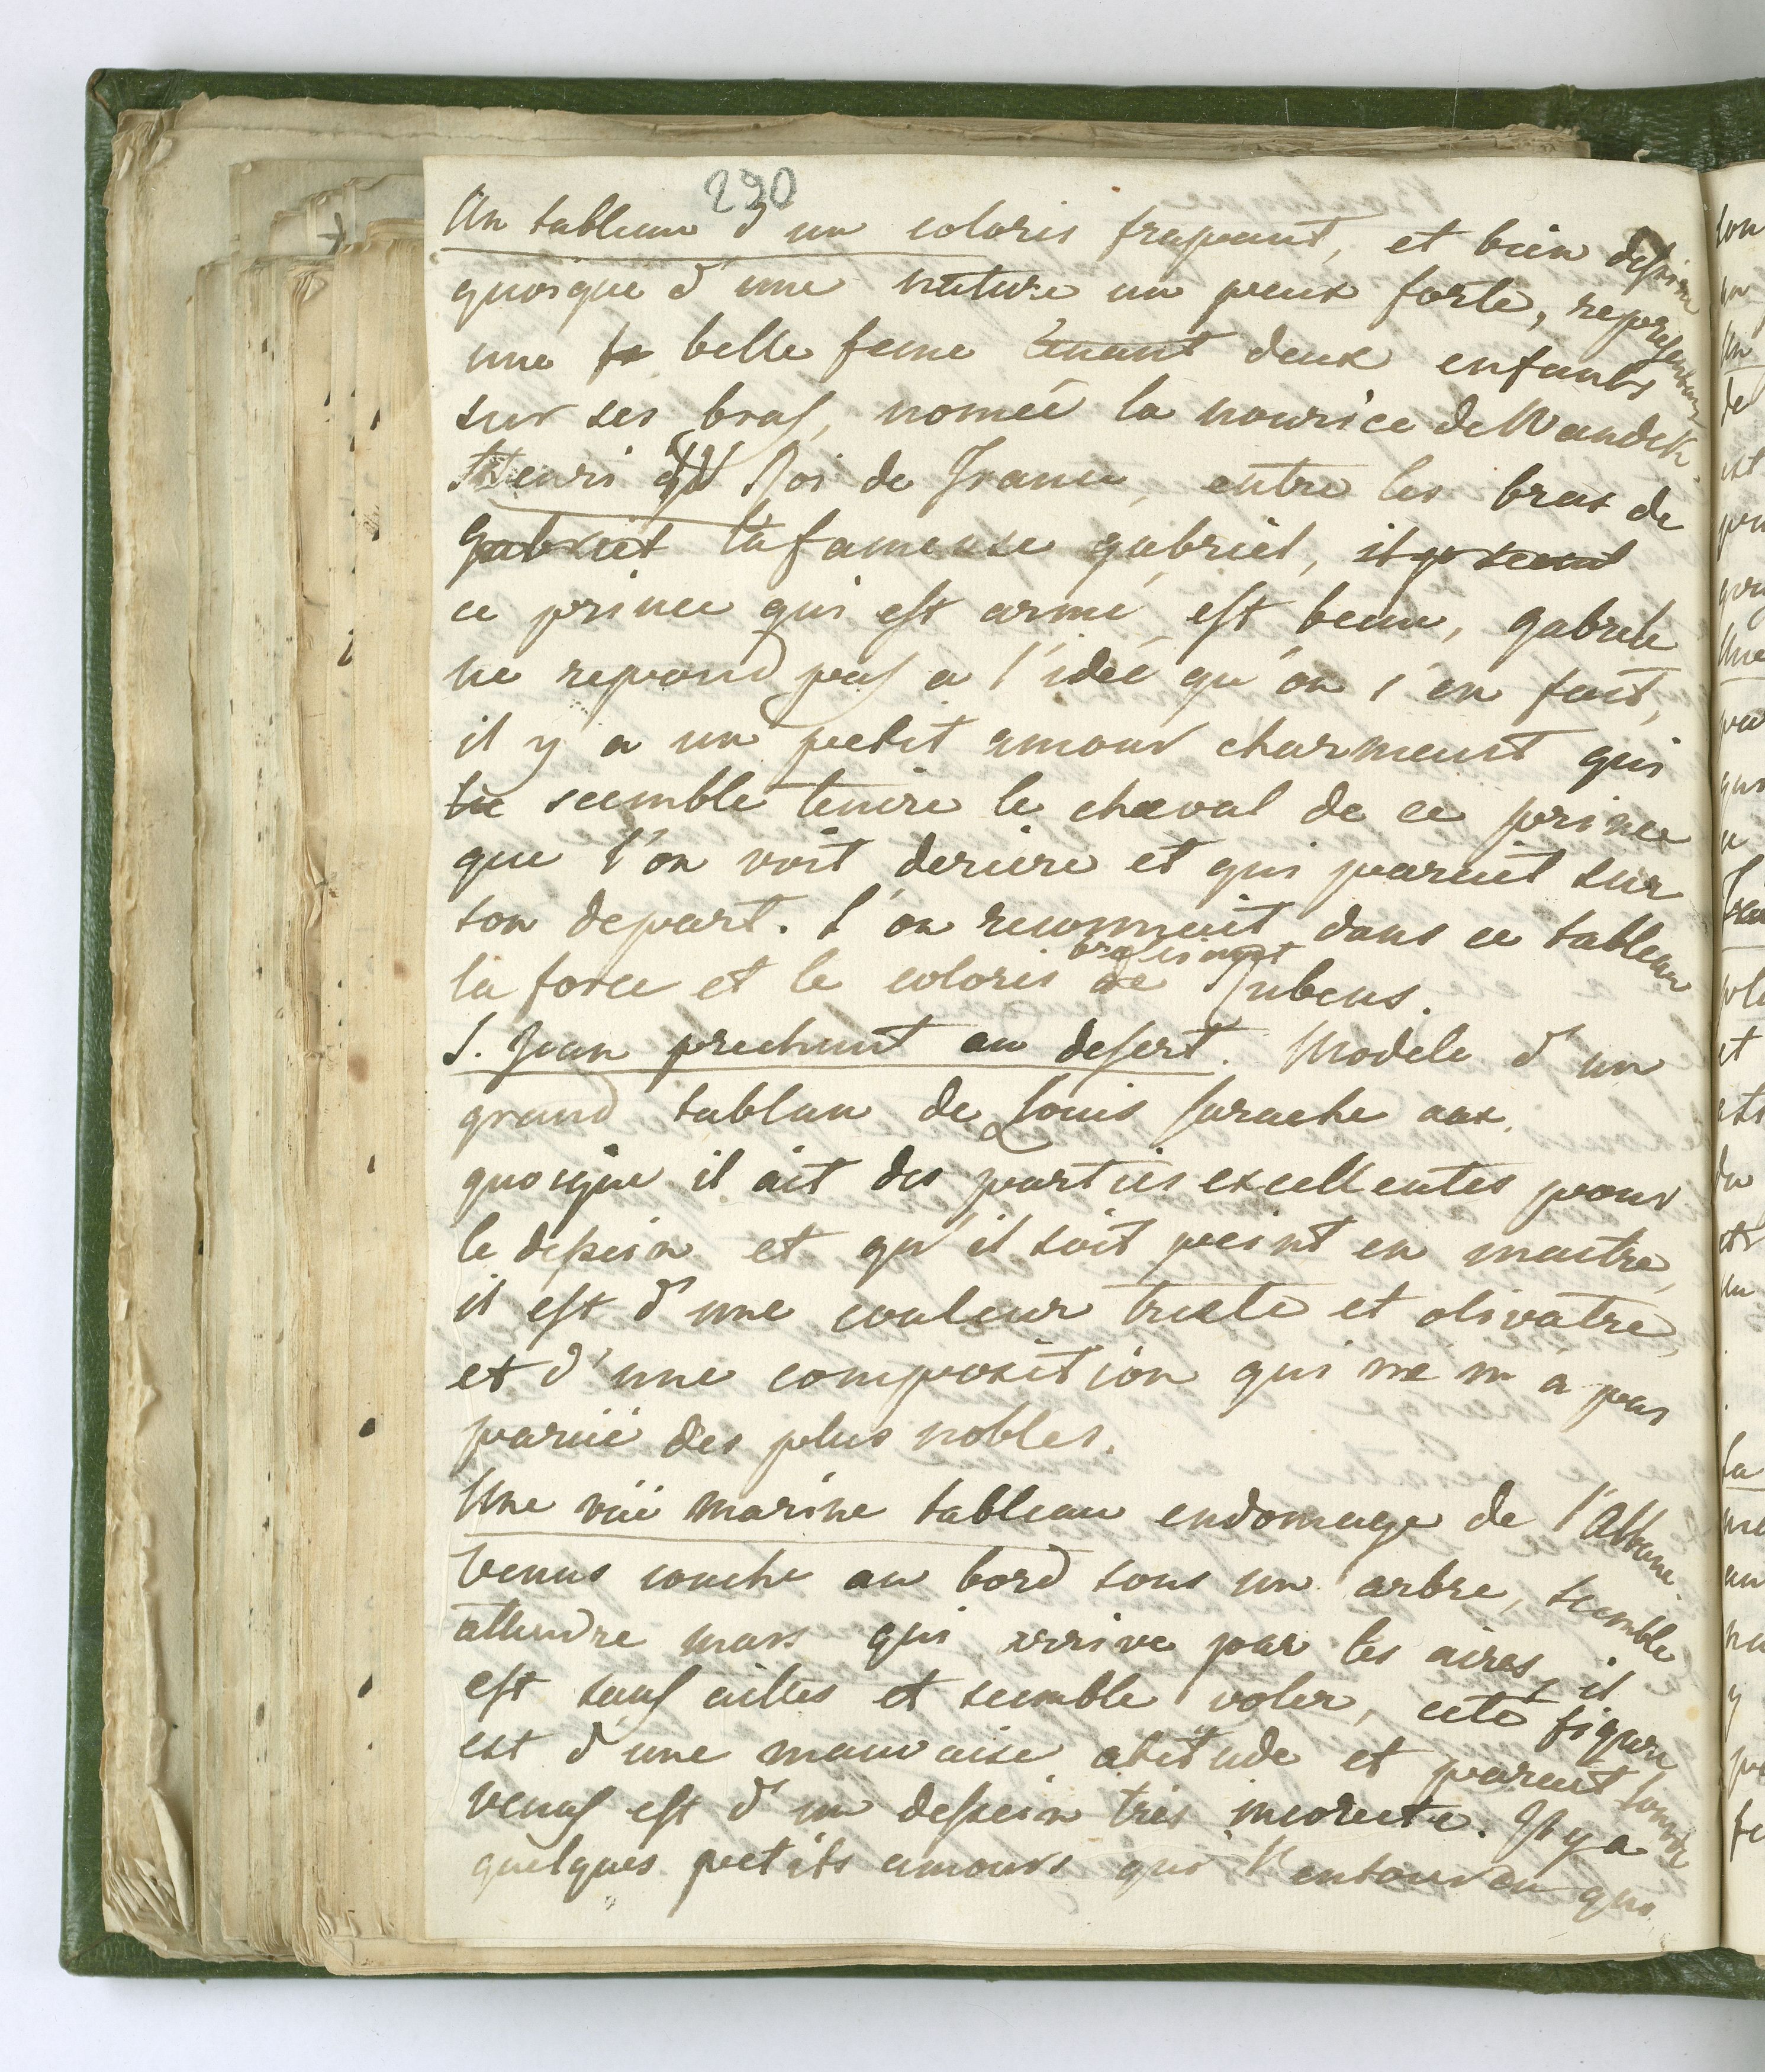 290
Un tableau d'un coloris frapant, et bien dessiné
quoique d'une nature un peux forte, representant
une fe belle feme tenant deux enfants
sur ses bras, nomeé la nourice de Wandek.
Henri Roi de France, entre les bras de
gabriel la fameuse gabriel,
ce prince qui est armé est beau, gabriele
ne repond pas a l'idée qu'on s'en fait,
il y a un petit amour charmant qui
tie seemble tenire le cheval de ce prince
que l'on voit deriere et qui parait sur
son depart. l'on reconnait dans ce tableau
la force et le coloris de Rubens.
S. Jean prechant au desert. Modele d'un
grand tablau de Louis Carache
quoique il ait des parties excellentes pour
le dessein et qu'il soit peint en maitre,
il est d'une couleur triste et olivatre,
et d'une composition qui ne m'a pas
paruë des plus nobles.
Une vüe marine tableau endomage de l'Albane
venus couche au bord sous un arbre, seemble
attendre mars qui arrive par les aires, il
est sans ailles et seemble voler, cete figure
est d'une mauvaise atitude et parait lourde
venus est d'un dessein tres incorecte. Il y a
quelques petits amours qui l'entour